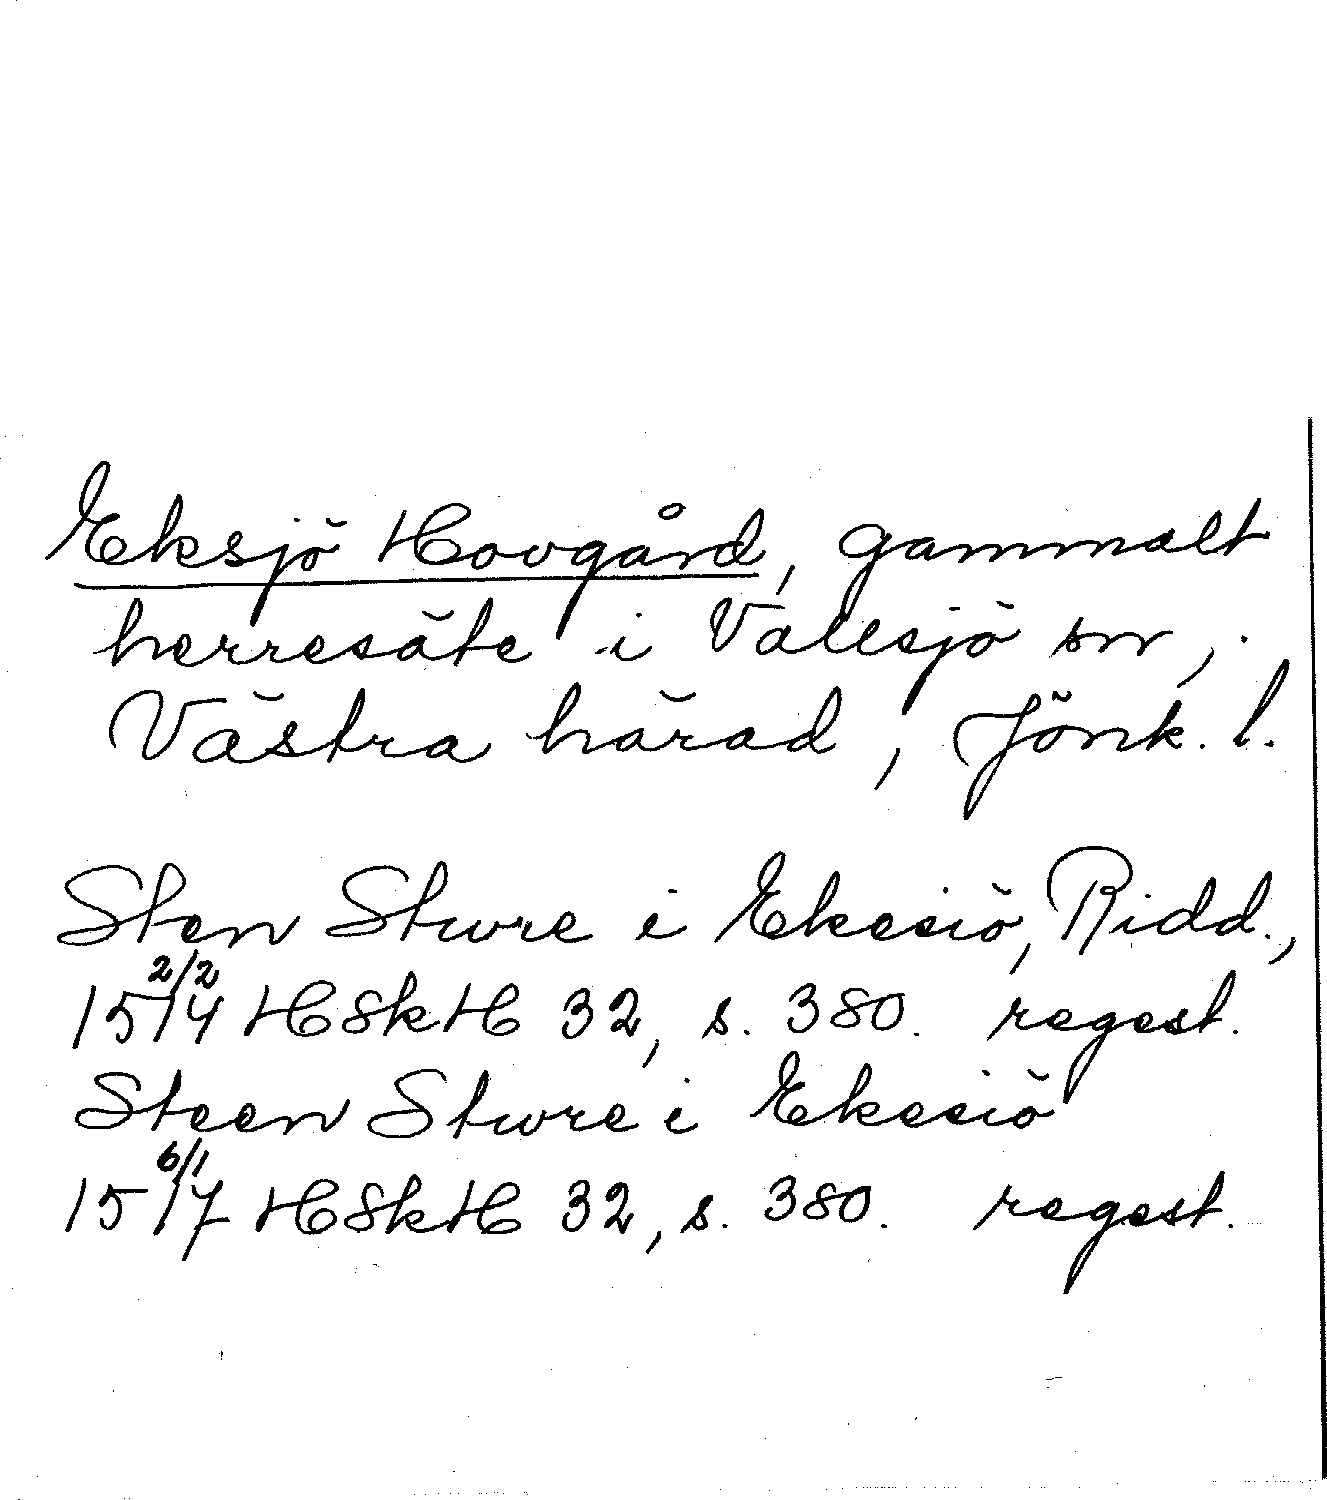 Eksjö Hovgård, gammalt
herresäte i Vallsjö sn,
Västra härad, Jönk. l.
Sten Sture i Ekesiö, Ridd.,
15 2/2 14 HSkH 32, s. 380. regest.
Steen Sture i Ekesiö
15 6/1 17 HSkH 32, s. 380. regest.